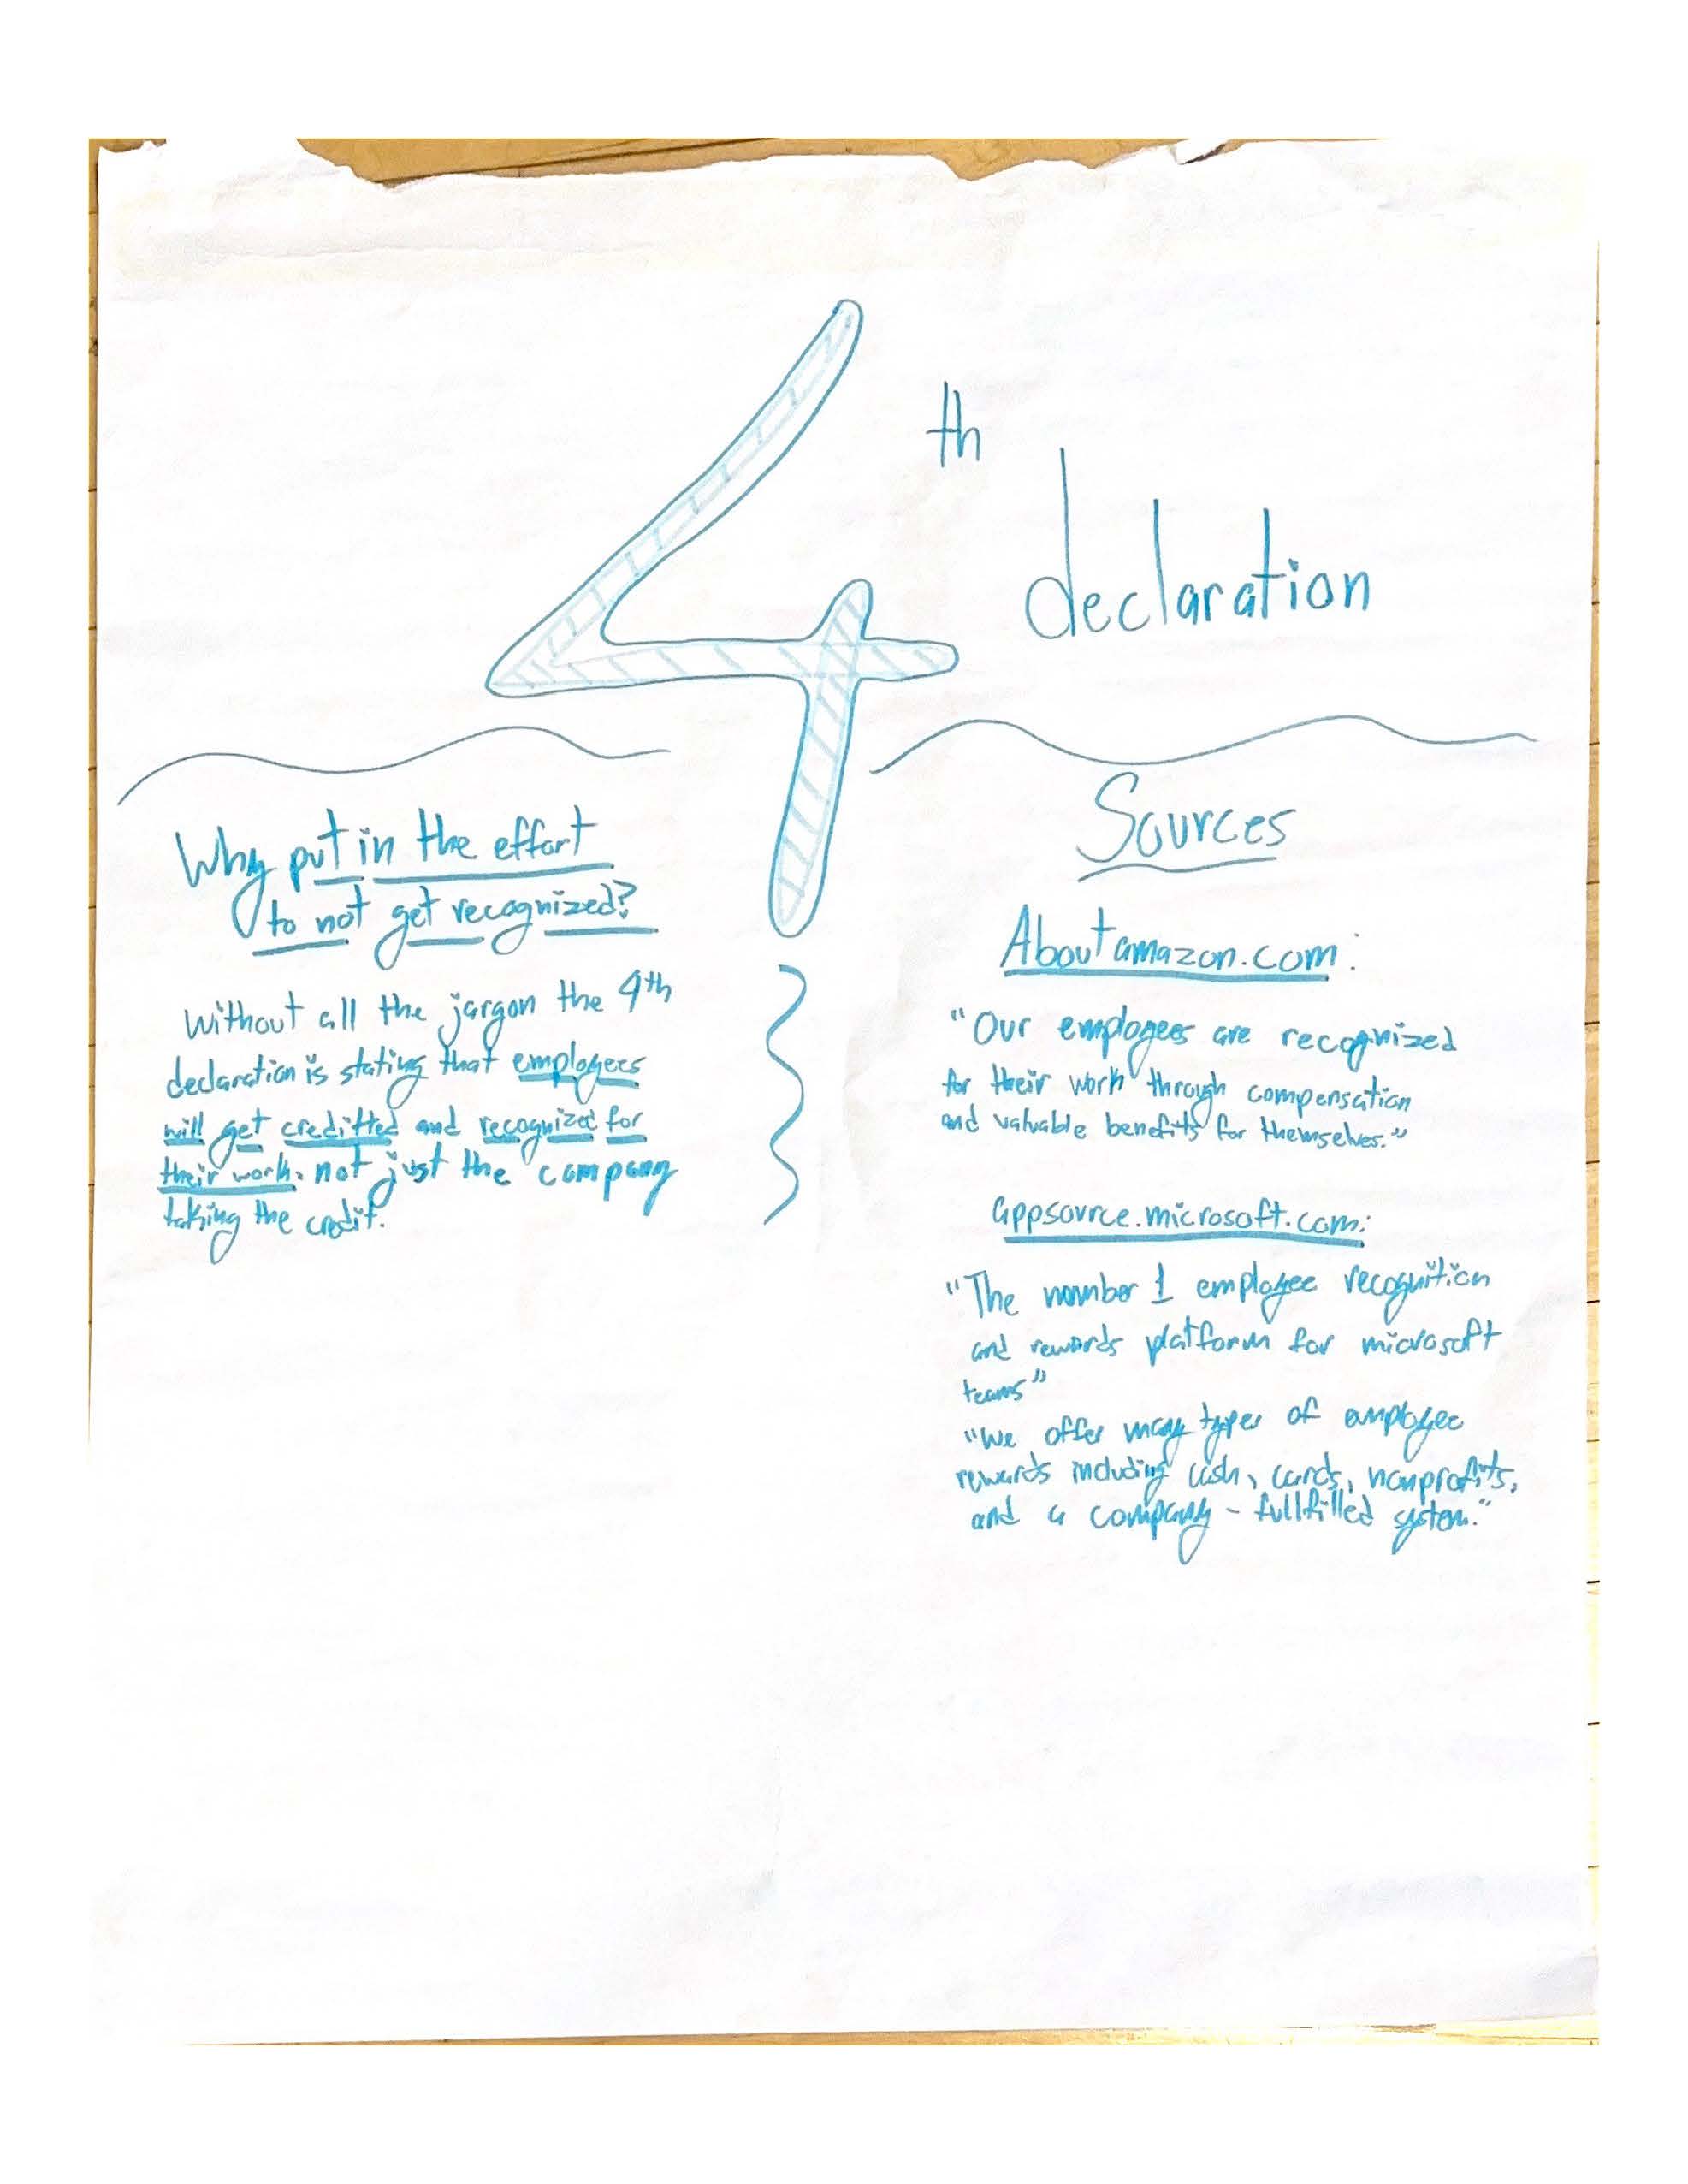 4th
declaration
Why put in the effort
to not get recognized?
Without all the jargon the 4th
declaration is stating that employees
will get creditted and recognized for
their work. not just the company
taking the credit.
Sources
Aboutamazon.com:
"Our employees are recognized
for their work through compensation
and valuable benefits for themselves."
appsource.microsoft.com:
"The number 1 employee recognition
and rewards platform for microsoft
teams"
"We offer many types of employee
rewards including cash, cards, nonprofits,
and a company-fullfilled system."